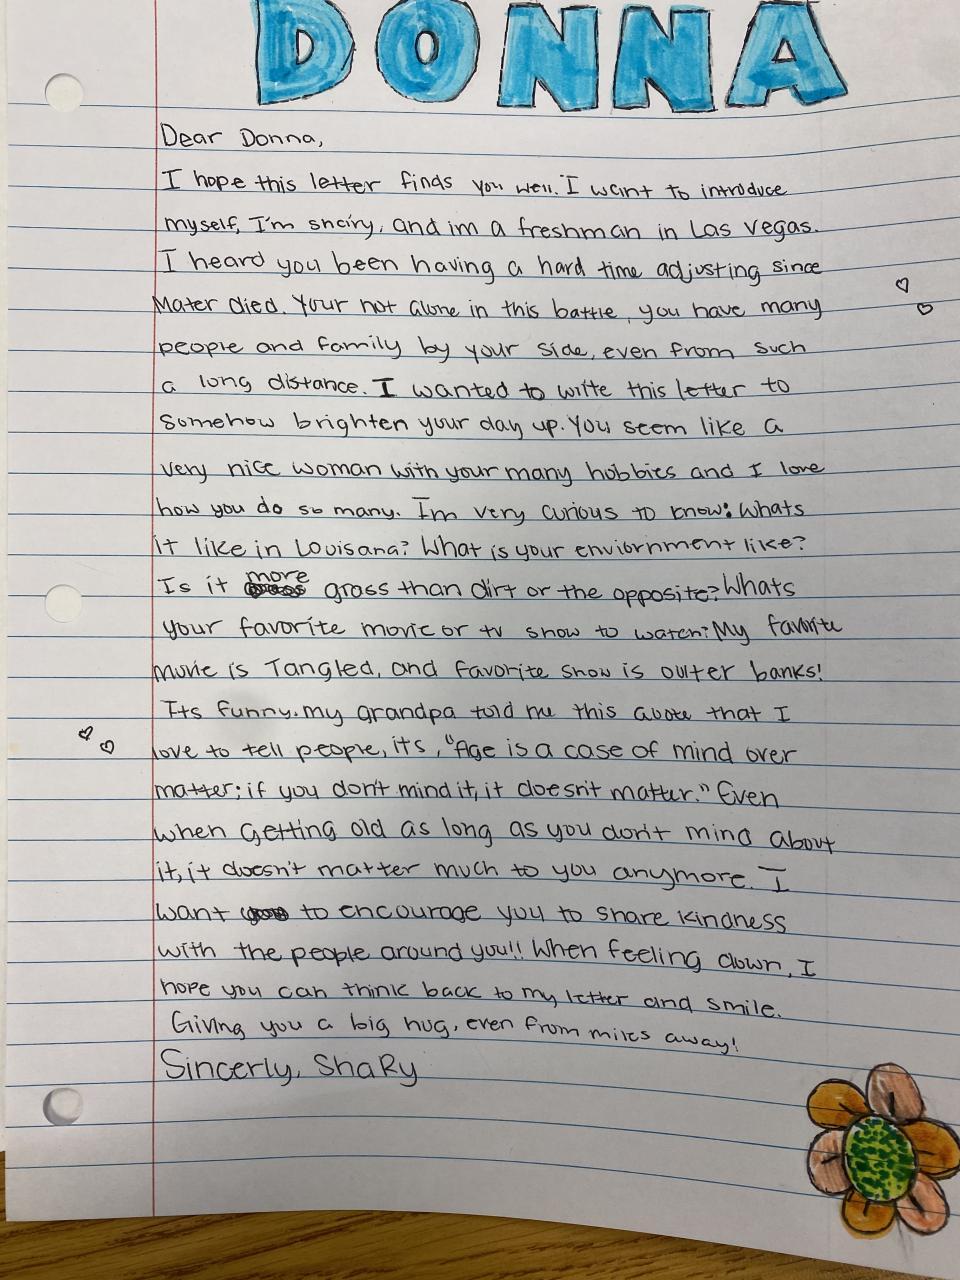 DONNA
Dear Donna,
I hope this letter finds you well. I want to introduce
myself, I'm shary, and im a freshman in Las Vegas.
I heard you been having a hard time adjusting since
Mater died. Your not alone in this battle, you have many
people and family by your side, even from such
a long distance. I wanted to write this letter to
somehow brighten your day up. You seem like a
very nice woman with your many hobbies and I love
how you do so many. Im very curious to know: Whats
it like in Louisana? What is your enviornment like?
Is it more grass than dirt or the opposite? Whats
your favorite movie or tv show to watch? My favorite
movie is Tangled, and favorite show is outer banks!
Its funny. my grandpa told me this quote that I
love to tell people, its, "Age is a case of mind over
matter; if you don't mind it, it doesn't matter." Even
when getting old as long as you don't mind about
it, it doesn't matter much to you anymore. I
want to encourage you to share kindness
with the people around you!! When feeling down, I
hope you can think back to my letter and smile.
Giving you a big hug, even from miles away!
Sincerly, ShaRy